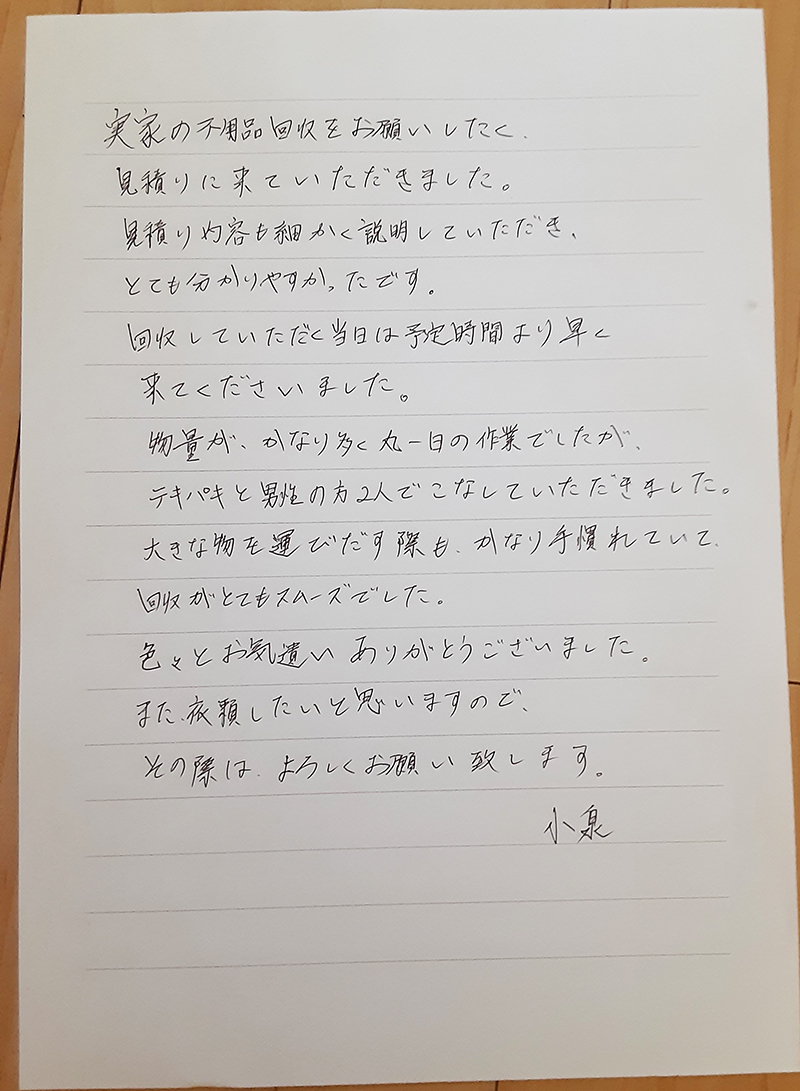 実家の不用品回収をお願いしたく、
見積りに来ていただきました。
見積り内容も細かく説明していただき、
とても分かりやすかったです。
回収していただく当日は予定時間より早く
来てくださいました。
物量が、かなり多く丸一日の作業でしたが、
テキパキと男性の方2人でこなしていただきました。
大きな物を運びだす際も、かなり手慣れていて、
回収がとてもスムーズでした。
色々とお気遣いありがとうございました。
また、依頼したいと思いますので、
その際は、よろしくお願い致します。
小泉